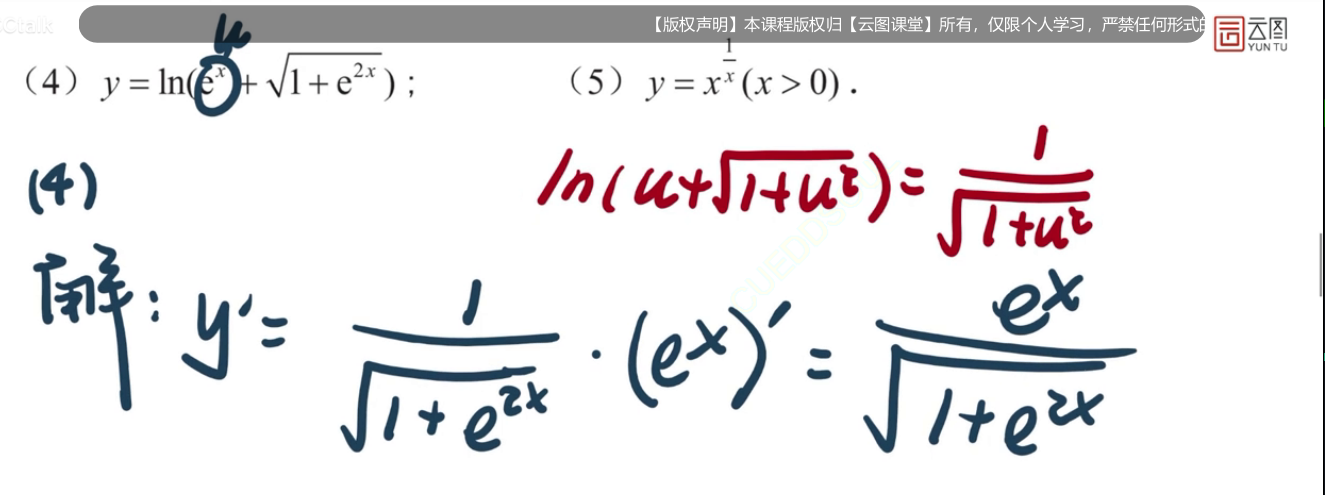 【版权声明】本课程版权归【云图课堂】所有，仅限个人学习，严禁任何形式的
云图
YUN TU
u
（4）y = ln(eˣ + √(1 + e²ˣ))；
（5）y = x^(1/x) (x > 0)．
(4)
ln(u+√(1+u²))= 1/√(1+u²)
解: y′= 1/√(1+e²ˣ) · (eˣ)′ = eˣ/√(1+e²ˣ)